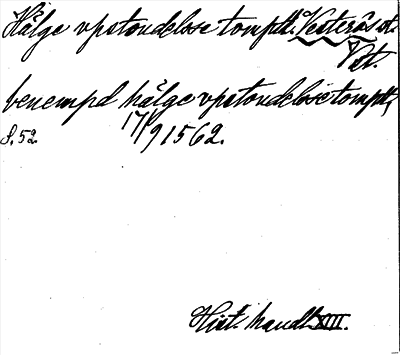 Hälge vpstondelose tompt. Vesterås st.
Vstm.
benempd hälge vpstondelose tomptt,
S. 52. 17/9 1562.
Hist. handl. XIII.